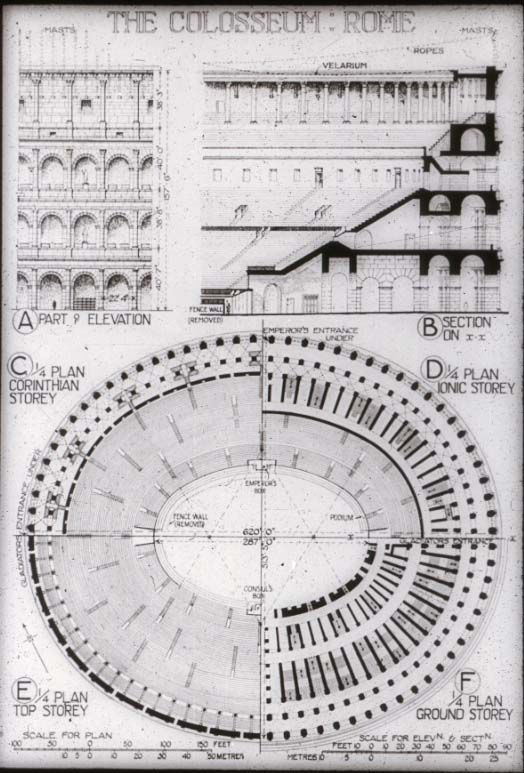 THE COLOSSEUM : ROME
MASTS
MASTS
ROPES
VELARIUM
FENCE WALL
(REMOVED)
A PART OF ELEVATION
B SECTION
ON X-X
EMPEROR'S ENTRANCE
UNDER
C 1/4 PLAN
CORINTHIAN
STOREY
D 1/4 PLAN
IONIC STOREY
GLADIATORS ENTRANCE UNDER
EMPEROR'S
BOX
FENCE WALL
(REMOVED)
PODIUM
620' 0"
287' 0"
GLADIATORS ENTRANCE
CONSUL'S
BOX
E 1/4 PLAN
TOP STOREY
F
1/4 PLAN
GROUND STOREY
SCALE FOR PLAN
100 50 0 50 100 150 FEET
10 5 0 10 20 30 40 50 METRES
SCALE FOR ELEVN. & SECTN.
FEET 10 0 10 20 30 40 50 60 70 80 90
METRES 10 5 0 5 10 15 20 25